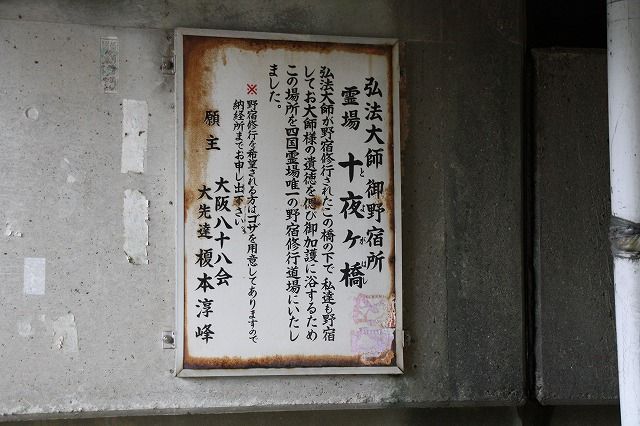 弘法大師 御野宿所
霊場 十夜ヶ橋
とよがはし
弘法大師が野宿修行されたこの橋の下で 私達も野宿
してお大師様の遺徳を偲び御加護に浴するため
この場所を四国霊場唯一の野宿修行道場にいたし
ました。
※野宿修行を希望される方はゴザを用意してありますので
納経所までお申し出下さい。
願主 大阪八十八会
大先達 榎本淳峰